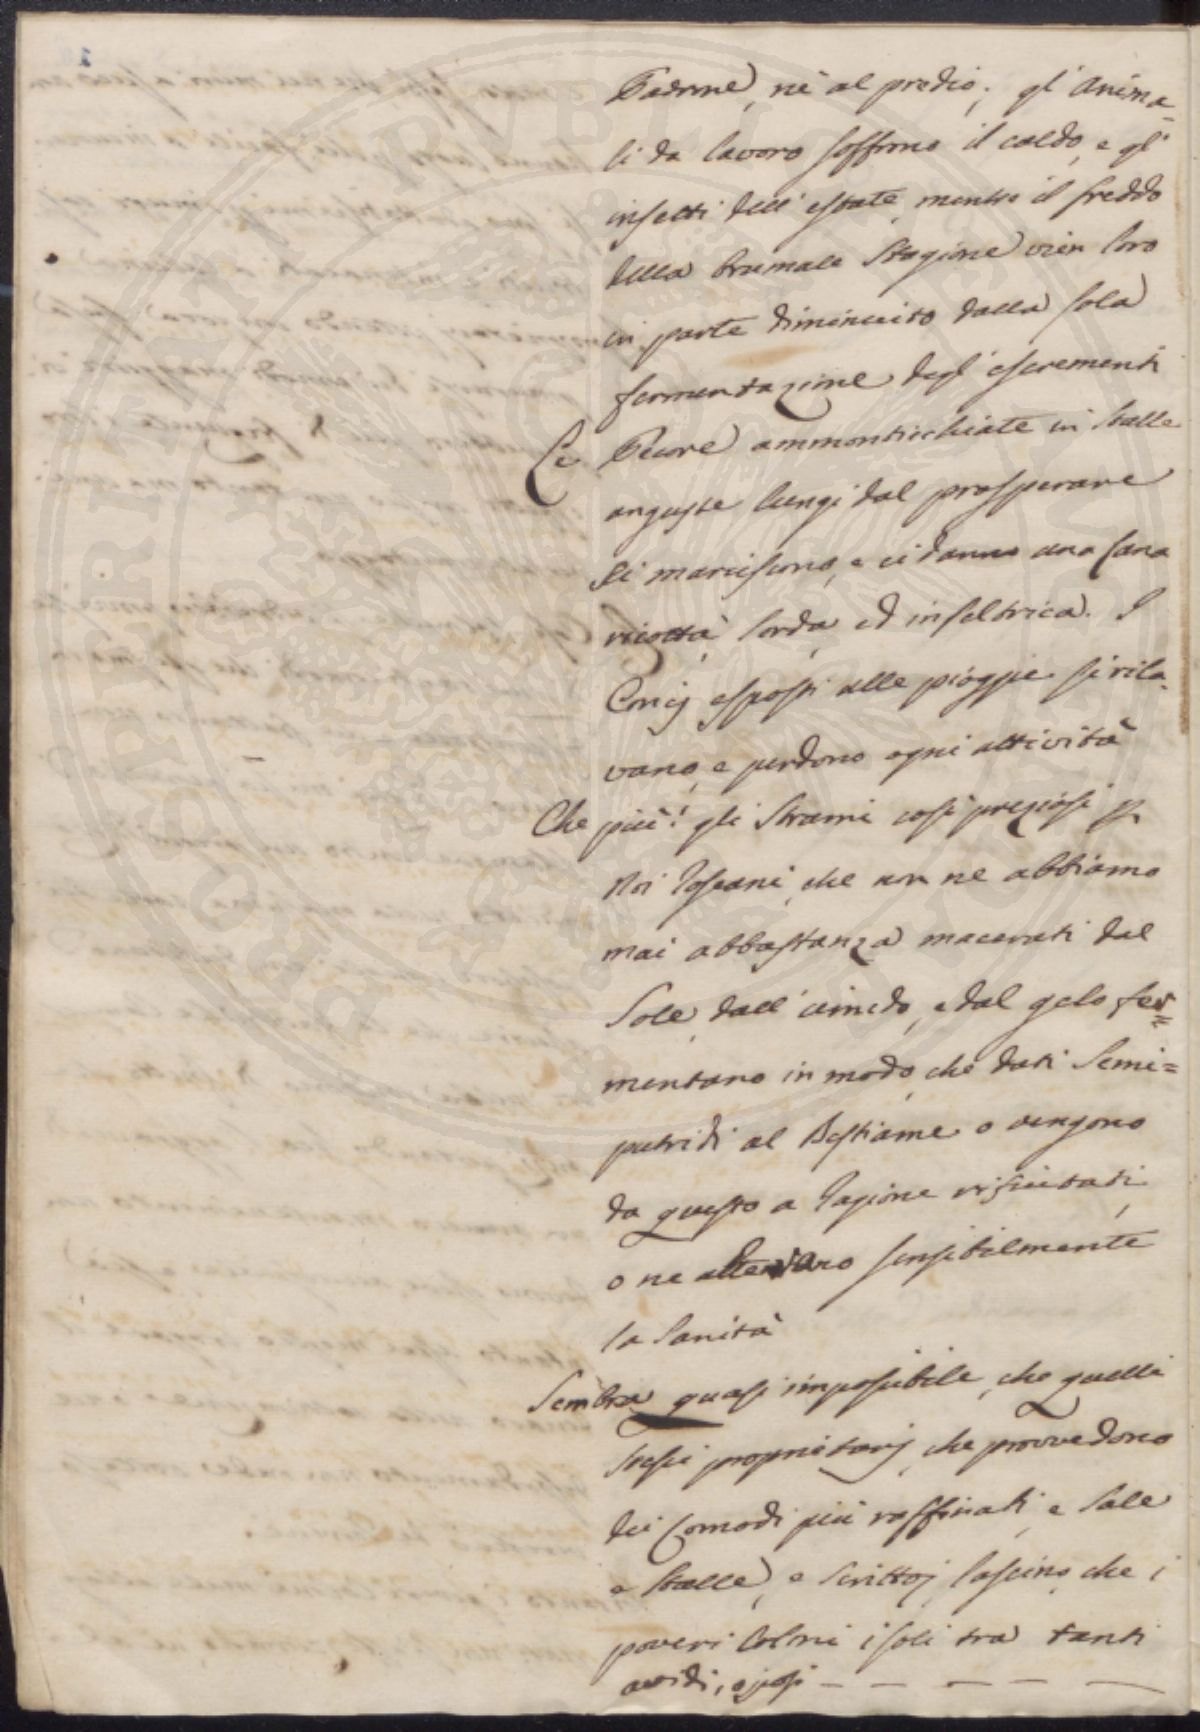 Padrone, nè al predio; gl'anima-
li da lavoro soffrono il caldo, e gl'
insetti dell'estate, mentre il freddo
della brumale Stagione vien loro
in parte diminuito dalla sola
fermentazione degl'escrementi
Le Pecore ammonticchiate in stalle
anguste lungi dal prosperare
si marciscono, e ci danno una lana
ricotta, lorda, ed infeltrica. I
Concj esposti alle pioggie si rila-
vano, e perdono ogni attività
Che più! gli Strami così preziosi p
Noi Toscani, che non ne abbiamo
mai abbastanza macerati dal
Sole, dall'umido, e dal gelo fer=
mentano in modo, che dati Semi=
putridi al Bestiame o vengono
da questo a ragione rifiutati,
o ne alterano sensibilmente
la Sanità
Sembra quasi impossibile, che quelli
stessi proprietarj, che provvedono
dei Comodi più raffinati, e Sale
e Stalle, e Scrittoj, lascino, che i
poveri Coloni i soli tra tanti
avidi, oziosi - - - - -
PROSPERITATI PVBLICAE